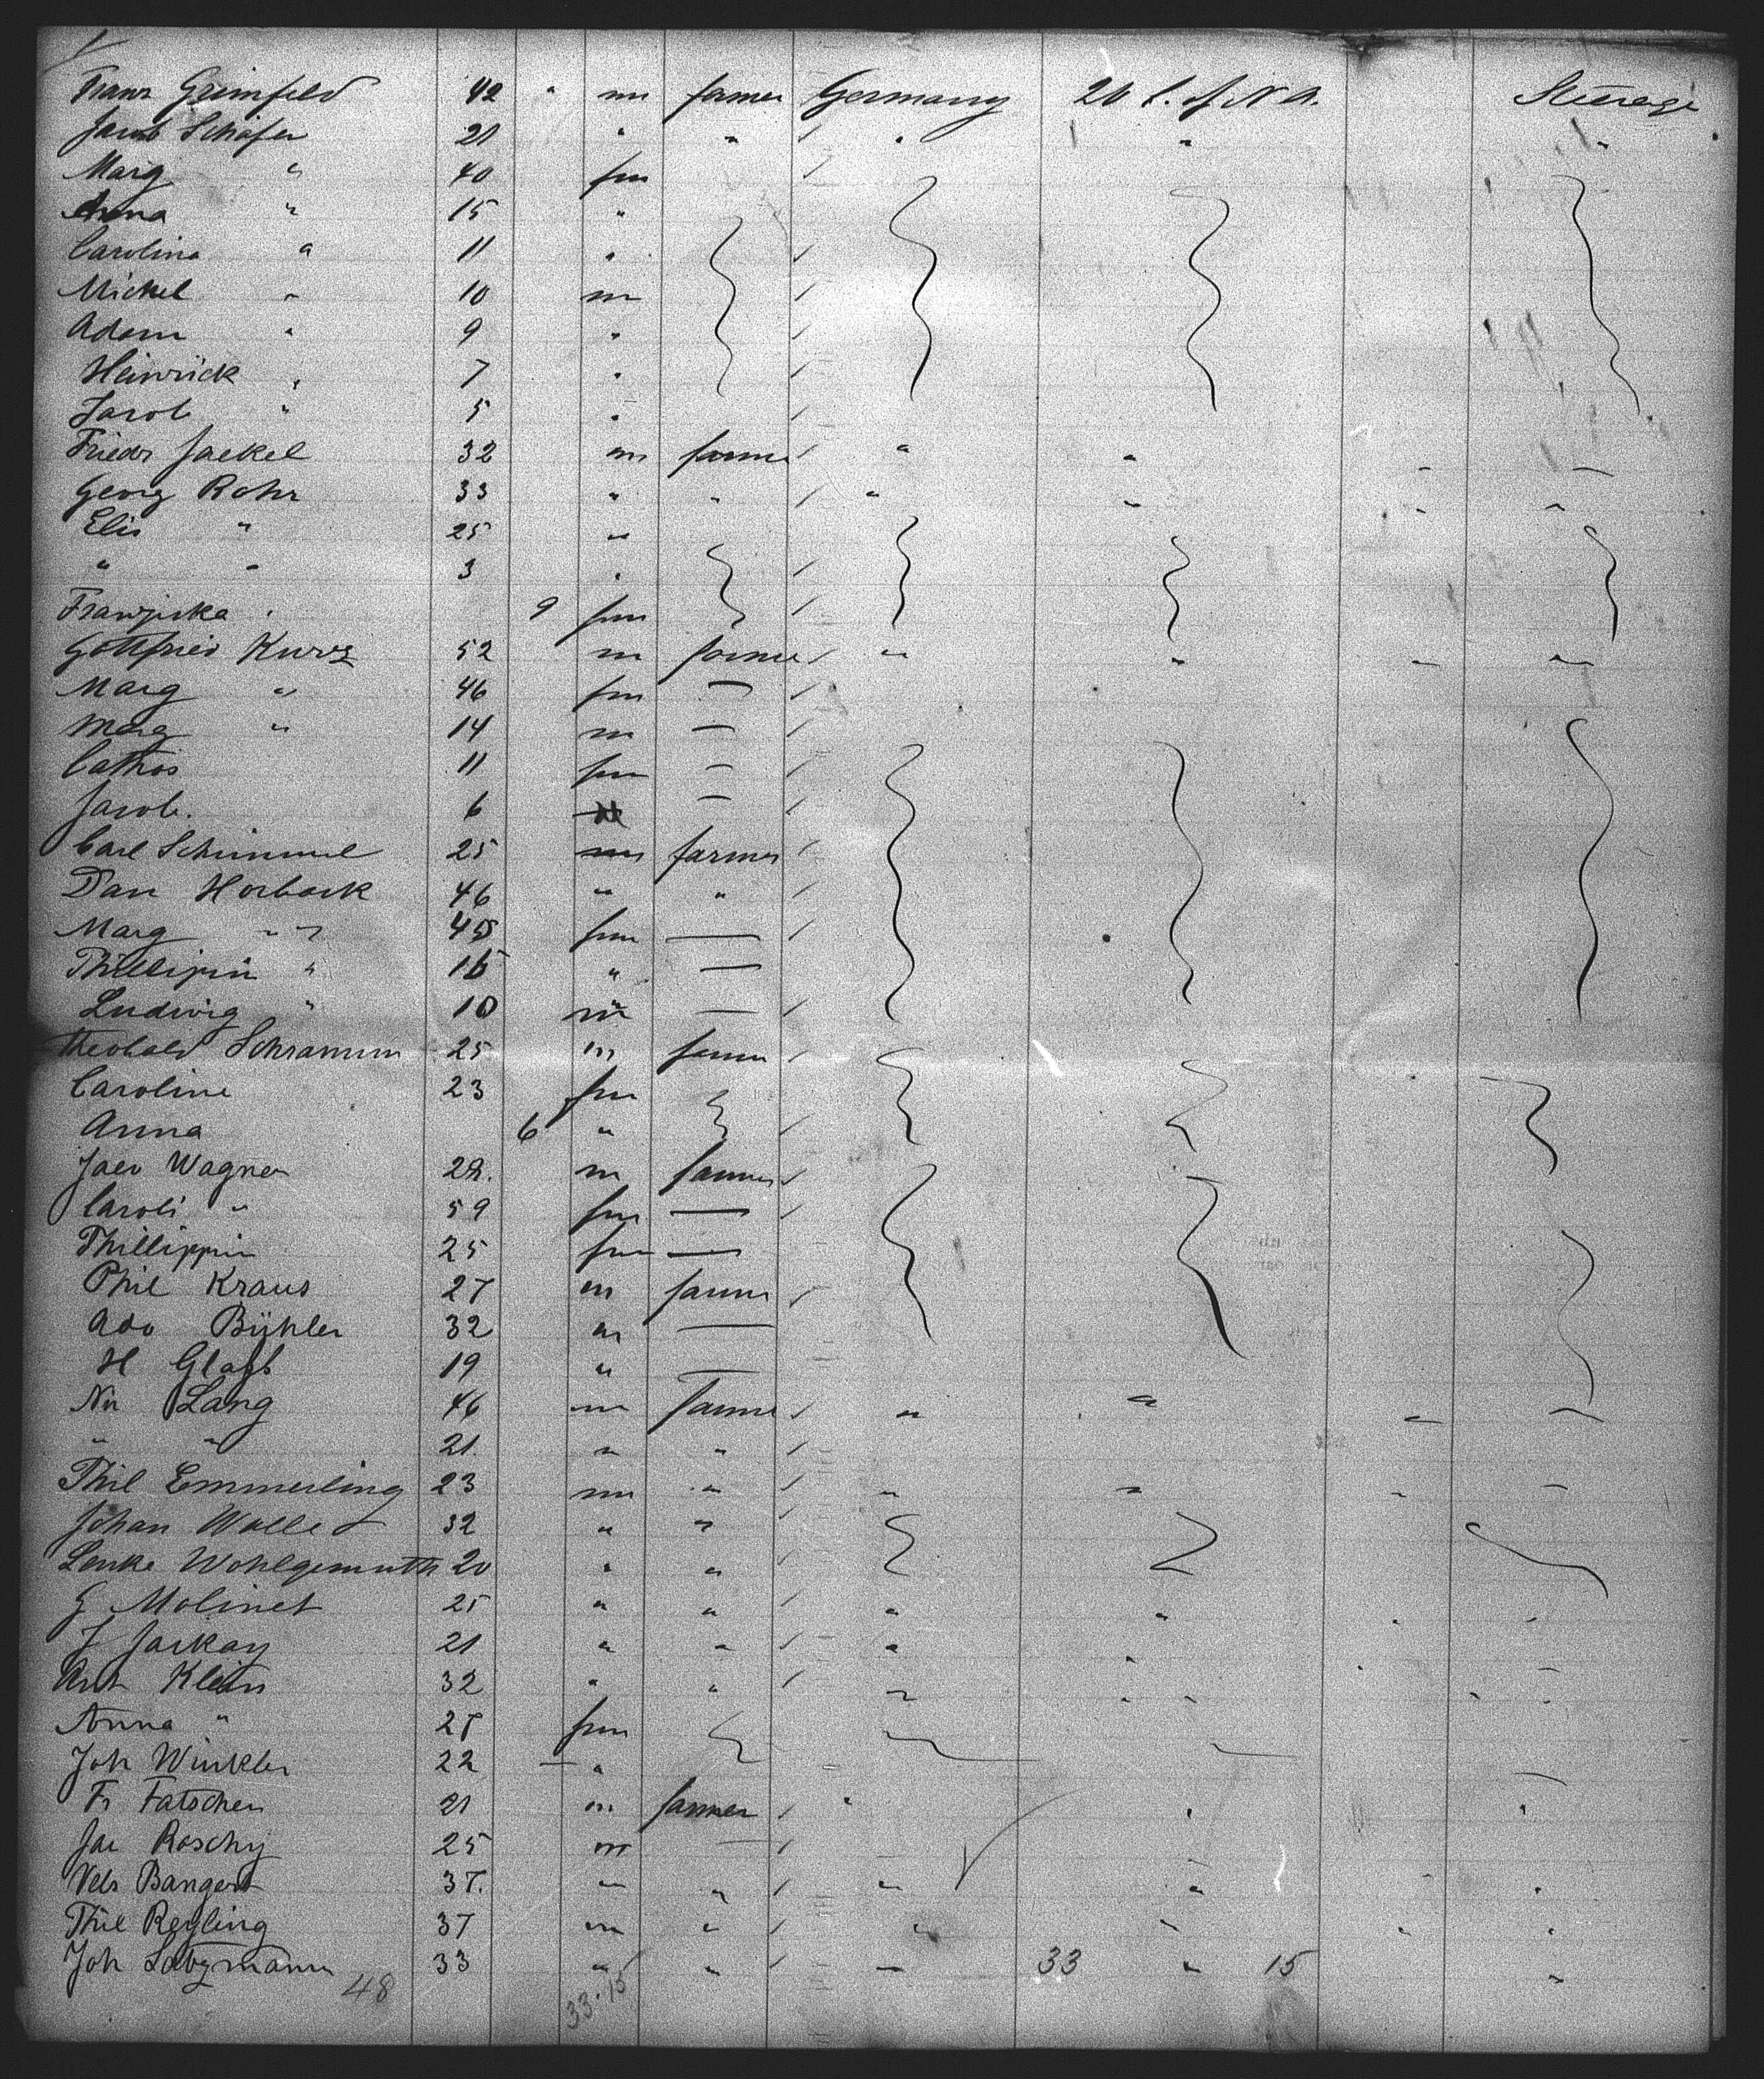 Franz Grimfeld 42 " m farmer Germany U. S. of N A. Steerage
Jacob Schäfer 21 " " " " "
Marg " 40 fm
Anna " 15 "
Carolina " 11 "
Mickel " 10 m
Adam " 9 "
Heinrick " 7 "
Jacob " 5 "
Friedr Jaekel 32 m farmer " " " "
Georg Rohr 33 " " " " " "
Elis " 25 "
" " 3 "
Franziska " 9 fm
Gottfried Kurz 52 m farmer " " " "
Marg " 46 fm —
Marg " 14 m —
Cathar 11 fm —
Jacob. 6 —
Carl Schimmel 25 m farmer
Dan Horbach 46 " "
Marg " 45 fm —
Phillipin " 16 " —
Ludwig " 10 m —
Theobald Schramm 25 m farmer
Caroline 23 fm
Anna 6 "
Jacv Wagner 22. m farmer
Caroli " 59 fm —
Phillippin 25 fm —
Phil Kraus 27 m farmer
Ado Bühler 32 m —
H 19 " —
Lang 46 m farmer " " " "
" " 21. " "
Phil Emmerling 23 m " " " " "
Johan 32 " "
Wohlgemuth 20 " "
G Molinet 25 " " " " " "
J Jackay 21 " " " " "
Ant Klein 32 " " " " " "
Anna " 27 fm
Joh Winkler 22 — "
Fr Fatscher 21 m farmer " " "
Jac Roschy 25 m —
Bangert 37. " " " " " "
Phil Reyling 37 m " " " " "
Joh 33 " " " 33 " 15 "
48 33.15